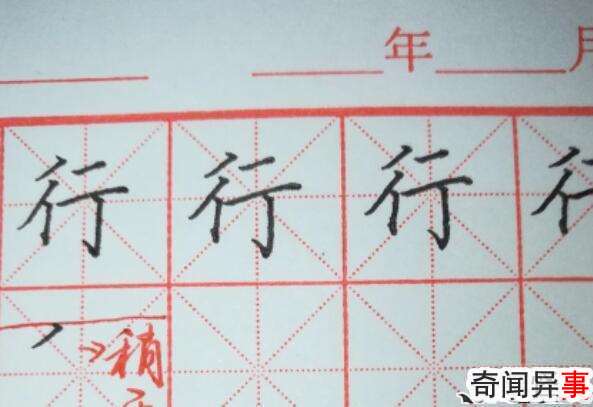 年 月
行 行 行 行
稍
奇闻异事